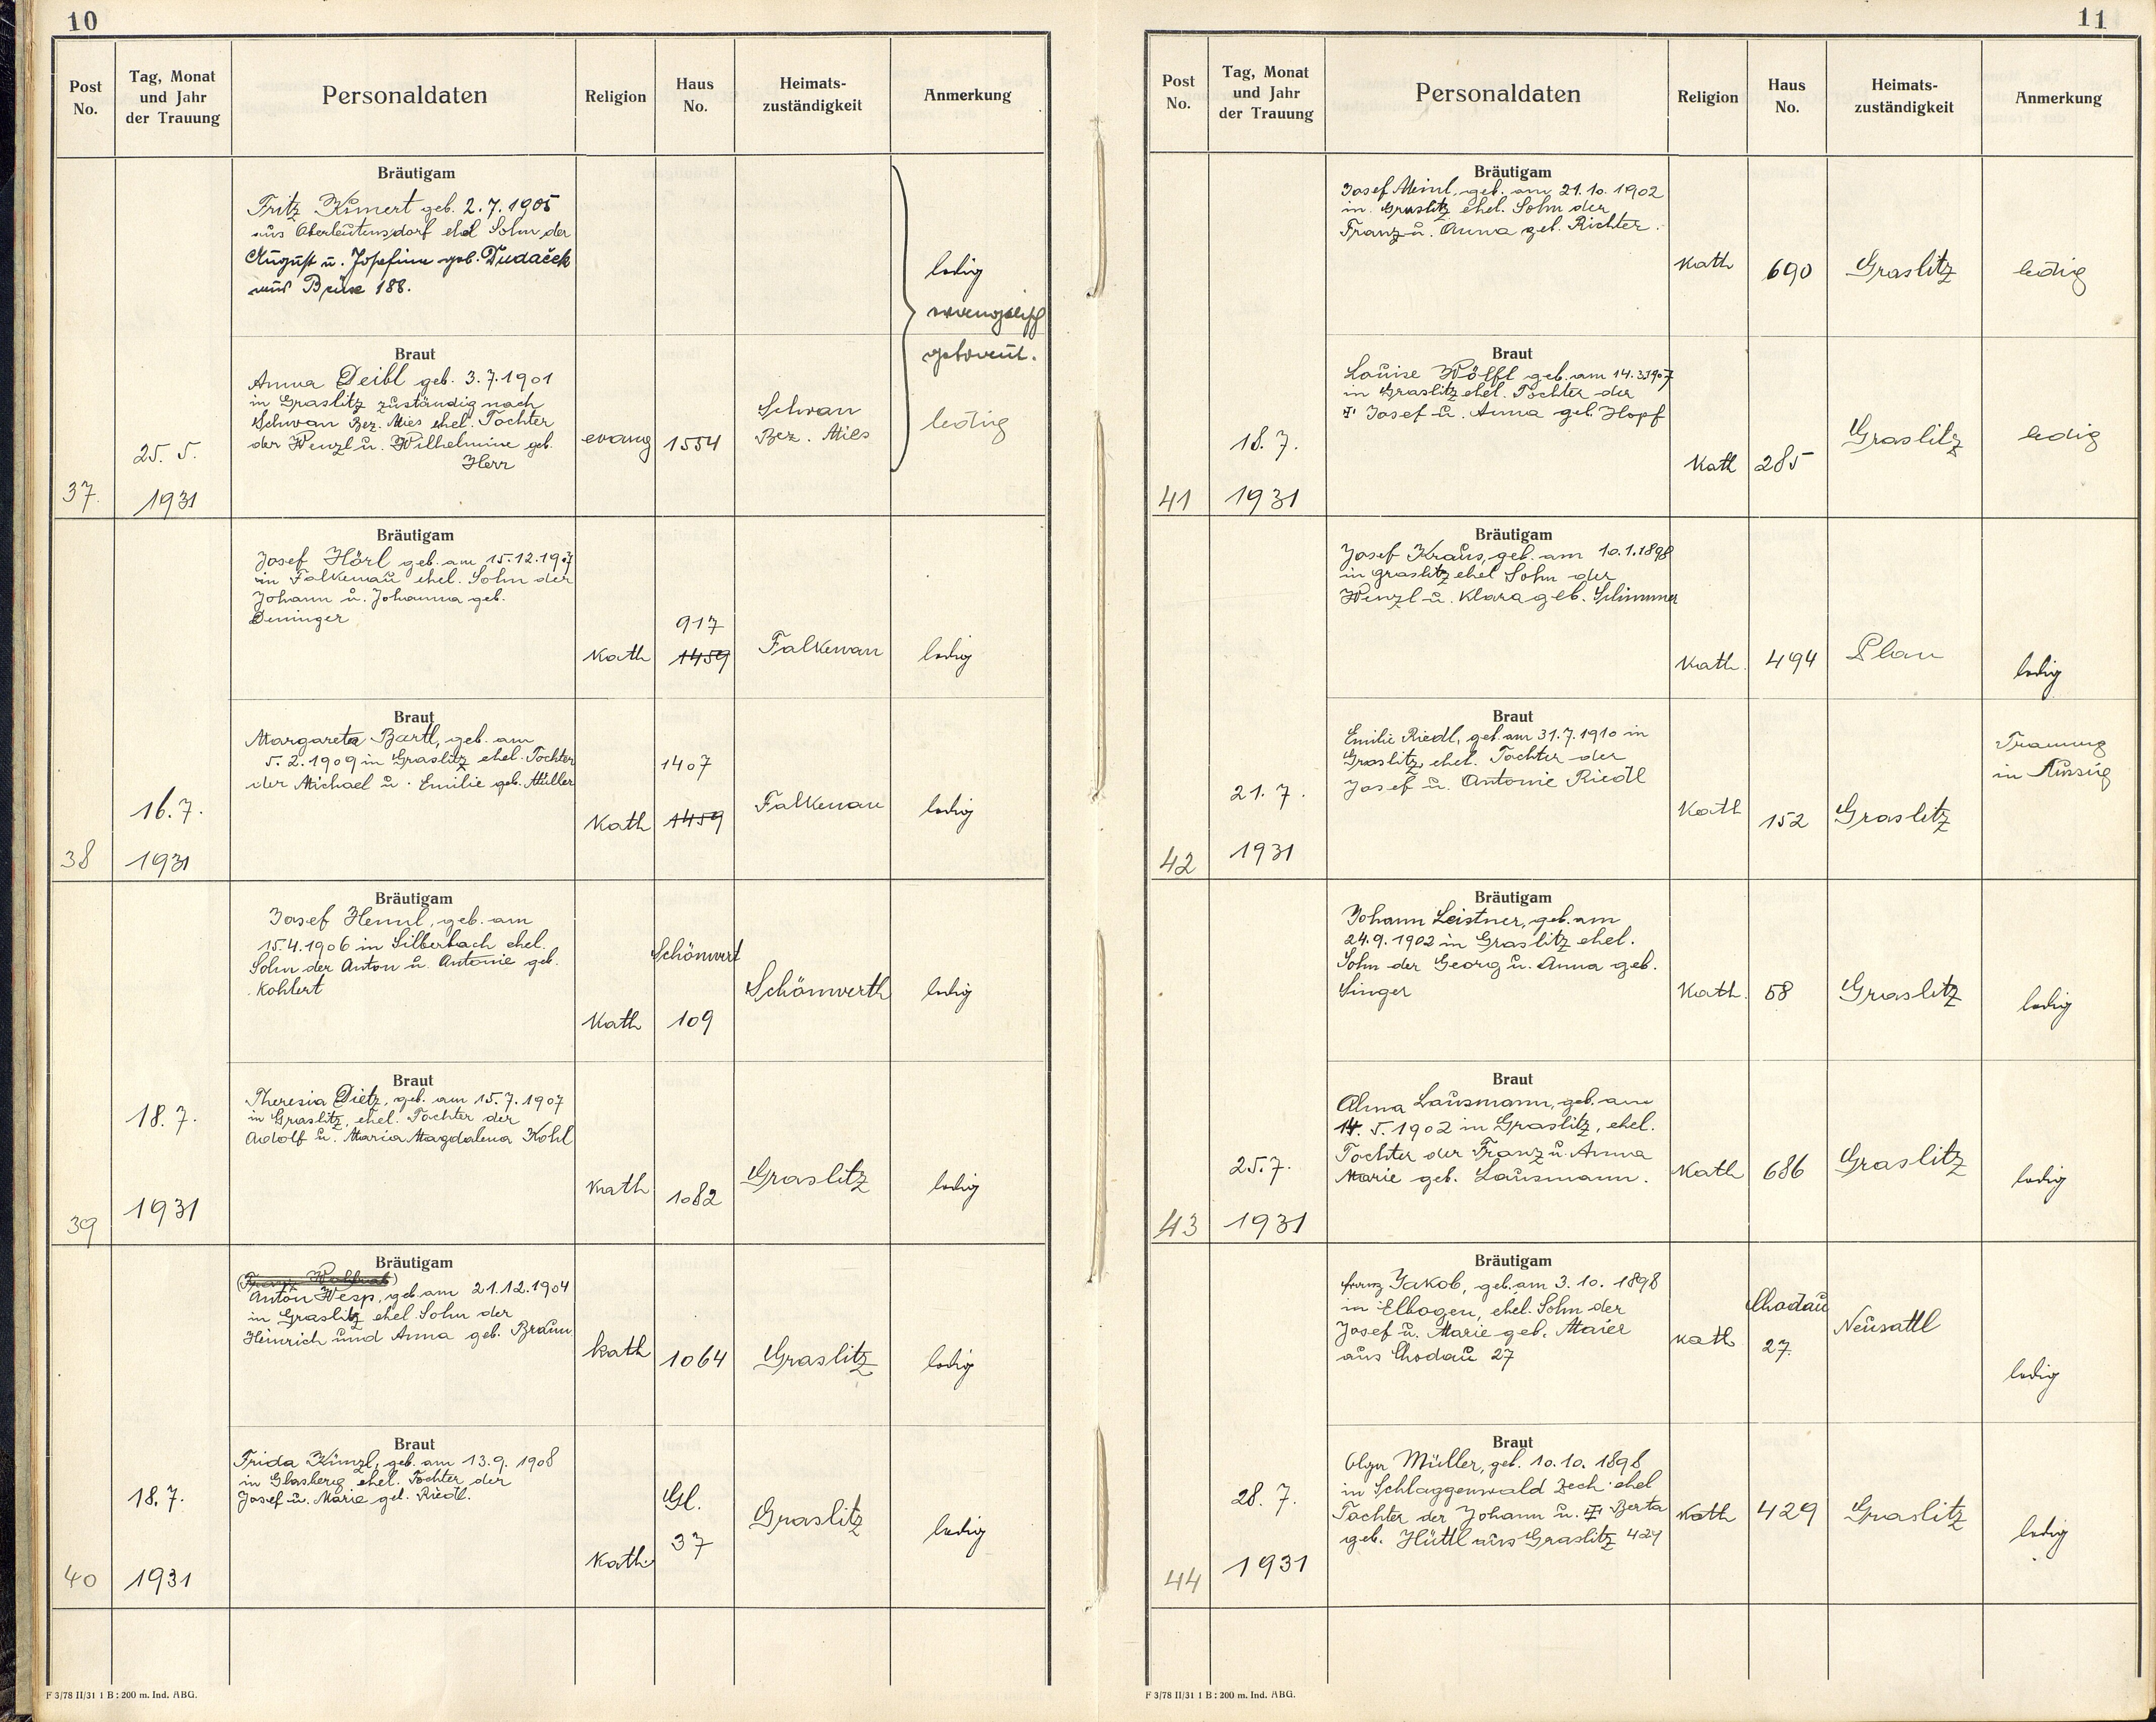 10
Post No.
Tag, Monat und Jahr der Trauung
Personaldaten
Religion
Haus No.
Heimats-zuständigkeit
Anmerkung
Bräutigam
Fritz Kimert geb. 2.7.1905
aus Oberleutensdorf ehel Sohn der
August u. Josefine geb. Dudaček
aus Brüx 188.
ledig
evangelisch
getraut.
Braut
Anna Deibl geb. 3.7.1901
in Graslitz zuständig nach
Schwan Bez. Mies ehel. Tochter
der Wenzl u. Wilhelmine geb.
Herr
evang
1554
Schwan
Bez. Mies
ledig
25. 5.
1931
37.
Bräutigam
Josef Hörl geb. am 15.12.1907
in Falkenau ehel. Sohn der
Johann u. Johanna geb.
Deninger
Kath
917
1459
Falkenau
ledig
Braut
Margareta Bartl, geb. am
5.2.1909 in Graslitz ehel. Tochter
der Michael u. Emilie geb. Müller
Kath
1407
1459
Falkenau
ledig
16.7.
1931
38
Bräutigam
Josef Heinl, geb. am
15.4.1906 in Silberbach ehel.
Sohn der Anton u. Antonie geb.
Kohlert
Kath
Schönwert
109
Schönwerth
ledig
Braut
Theresia Dietz, geb. am 15.7.1907
in Graslitz, ehel. Tochter der
Adolf u. Maria Magdalena Kohl
Kath
1082
Graslitz
ledig
18.7.
1931
39
Bräutigam
Anton Wesp, geb am 21.12.1904
in Graslitz ehel Sohn der
Heinrich und Anna geb. Braun
Kath
1064
Graslitz
ledig
Braut
Frida Künzl, geb. am 13.9.1908
in Glasberg ehel. Tochter der
Josef u. Marie geb. Riedl.
Kath.
Gl.
37
Graslitz
ledig
18.7.
1931
40
F 3/78 II/31 1 B : 200 m. Ind. ABG.
11
Post No.
Tag, Monat und Jahr der Trauung
Personaldaten
Religion
Haus No.
Heimats-zuständigkeit
Anmerkung
Bräutigam
Josef Meinl, geb. am 21.10.1902
in Graslitz ehel. Sohn der
Franz u. Anna geb. Richter.
Kath
690
Graslitz
ledig
Braut
Louise Wölfl geb. am 14.3.1907
in Graslitz ehel. Tochter der
Josef u. Anna geb. Hopf
Kath
285
Graslitz
ledig
18.7.
1931
41
Bräutigam
Josef Kraus, geb. am 10.1.1898
in Graslitz ehel Sohn der
Wenzl u. Klara geb. Schimmer
Kath.
494
Plan
ledig
Braut
Emilie Riedl, geb. am 31.7.1910 in
Graslitz, ehel. Tochter der
Josef u. Antonie Riedl
Kath
152
Graslitz
Trauung
in Aussig
21.7.
1931
42
Bräutigam
Johann Leistner, geb. am
24.9.1902 in Graslitz ehel.
Sohn der Georg u. Anna geb.
Singer
Kath.
58
Graslitz
ledig
Braut
Alma Lausmann, geb. am
14.5.1902 in Graslitz, ehel.
Tochter der Franz u. Anna
Marie geb. Lausmann.
Kath
686
Graslitz
ledig
25.7.
1931
43
Bräutigam
Franz Jakob, geb. am 3.10.1898
in Elbogen, ehel. Sohn der
Josef u. Marie geb. Maier
aus Chodau 27
Kath
Chodau
27.
Neusattl
ledig
Braut
Olga Müller, geb. 10.10.1898
in Schlaggenwald Zech. ehel
Tochter der Johann u. Berta
geb. Hüttl aus Graslitz 429
Kath
429
Graslitz
ledig
28.7.
1931
44
F 3/78 II/31 1 B : 200 m. Ind. ABG.